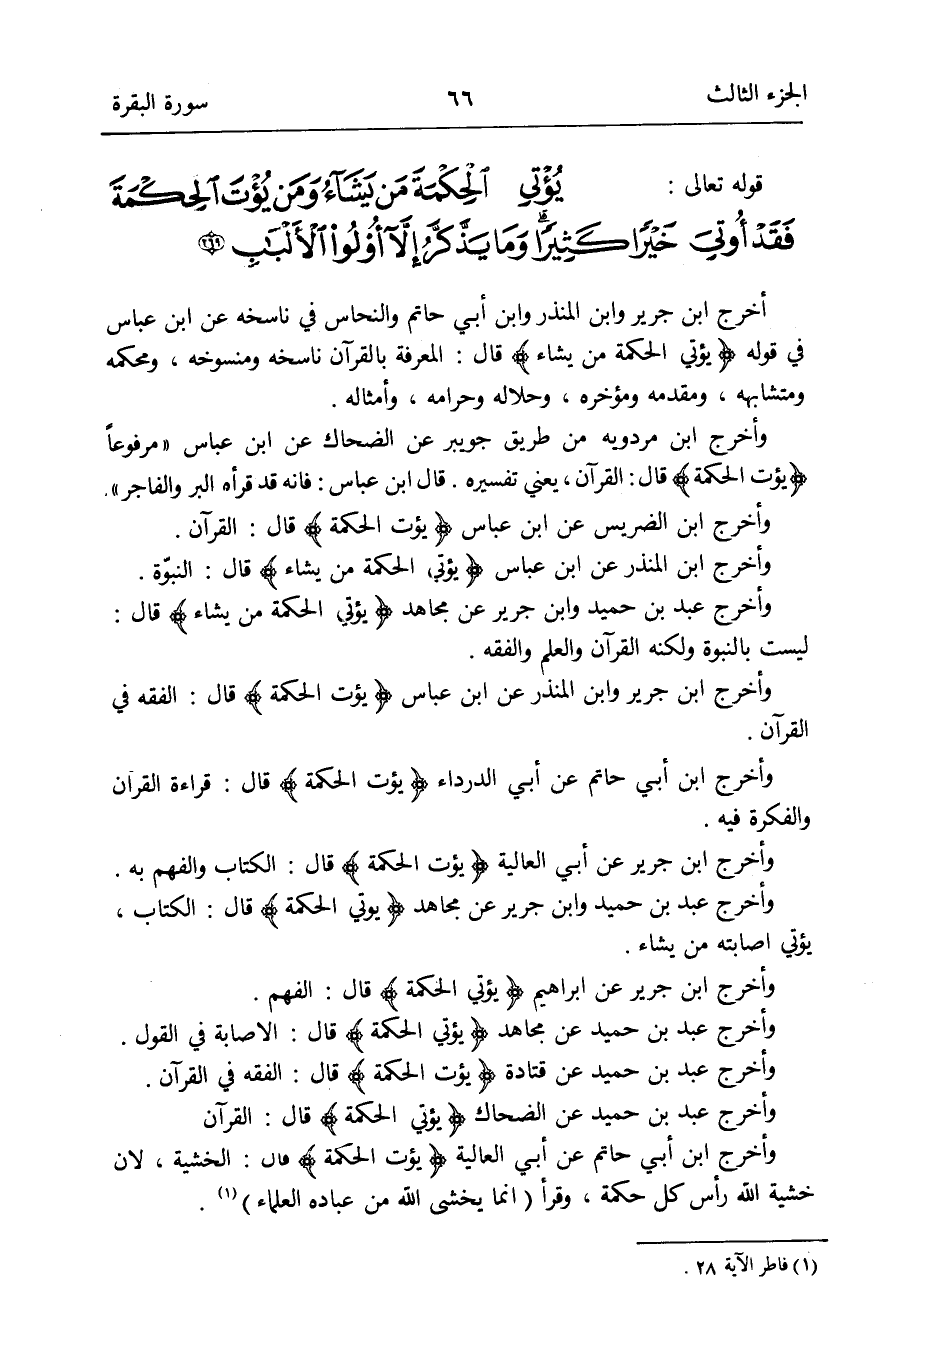 الجزء الثالث ٦٦ سورة البقرة
قوله تعالى : يُؤْتِي ٱلْحِكْمَةَ مَن يَشَآءُ وَمَن يُؤْتَ ٱلْحِكْمَةَ
فَقَدْ أُوتِيَ خَيْرًا كَثِيرًا ۗ وَمَا يَذَّكَّرُ إِلَّآ أُوْلُواْ ٱلْأَلْبَٰبِ ٢٦٩
أخرج ابن جرير وابن المنذر وابن أبي حاتم والنحاس في ناسخه عن ابن عباس
في قوله ﴿ يؤتي الحكمة من يشاء ﴾ قال : المعرفة بالقرآن ناسخه ومنسوخه ، ومحكمه
ومتشابهه ، ومقدمه ومؤخره ، وحلاله وحرامه ، وأمثاله .
وأخرج ابن مردويه من طريق جويبر عن الضحاك عن ابن عباس «مرفوعاً
﴿يؤت الحكمة﴾ قال: القرآن ، يعني تفسيره . قال ابن عباس : فانه قد قرأه البر والفاجر».
وأخرج ابن الضريس عن ابن عباس ﴿ يؤت الحكمة ﴾ قال : القرآن .
وأخرج ابن المنذر عن ابن عباس ﴿ يؤتي الحكمة من يشاء ﴾ قال : النبوّة .
وأخرج عبد بن حميد وابن جرير عن مجاهد ﴿ يؤتي الحكمة من يشاء ﴾ قال :
ليست بالنبوة ولكنه القرآن والعلم والفقه .
وأخرج ابن جرير وابن المنذر عن ابن عباس ﴿ يؤت الحكمة ﴾ قال : الفقه في
القرآن .
وأخرج ابن أبي حاتم عن أبي الدرداء ﴿ يؤت الحكمة ﴾ قال : قراءة القرآن
والفكرة فيه .
وأخرج ابن جرير عن أبي العالية ﴿ يؤت الحكمة ﴾ قال : الكتاب والفهم به .
وأخرج عبد بن حميد وابن جرير عن مجاهد ﴿ يوتي الحكمة ﴾ قال : الكتاب ،
يؤتي اصابته من يشاء .
وأخرج ابن جرير عن ابراهيم ﴿ يؤتي الحكمة ﴾ قال : الفهم .
وأخرج عبد بن حميد عن مجاهد ﴿ يؤتي الحكمة ﴾ قال : الاصابة في القول .
وأخرج عبد بن حميد عن قتادة ﴿ يؤت الحكمة ﴾ قال : الفقه في القرآن .
وأخرج عبد بن حميد عن الضحاك ﴿ يؤتي الحكمة ﴾ قال : القرآن
وأخرج ابن أبي حاتم عن أبي العالية ﴿ يؤت الحكمة ﴾ قال : الخشية ، لان
خشية الله رأس كل حكمة ، وقرأ ( انما يخشى الله من عباده العلماء )(١) .
(١) فاطر الآية ٢٨ .